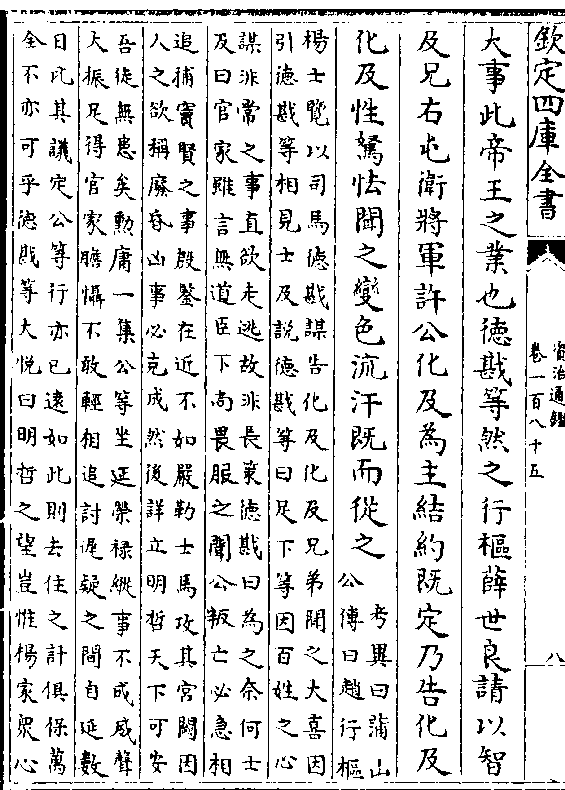 欽定四庫全書
資治通鑑
卷一百八十五
八
大事此帝王之業也德戡等然之行樞薛世良請以智
及兄右屯衛將軍許公化及為主結約既定乃告化及
化及性駑怯聞之變色流汗既而從之
考異曰蒲山
公傳曰趙行樞
楊士覽以司馬德戡謀告化及化及兄弟聞之大喜因
引德戡等相見士及説德戡等曰足下等因百姓之心
謀非常之事直欲走逃故非長策德戡曰為之奈何士
及曰官家雖言無道臣下尚畏服之聞公叛亡必急相
追捕竇賢之事殷鑒在近不如嚴勒士馬攻其宮闕因
人之欲稱廢昏凶事必克成然後詳立明哲天下可安
吾徒無患矣勲庸一集公等坐延榮祿縱事不成威聲
大振足得官家膽懾不敢輕相追討遲疑之間自延數
日此其議定公等行亦已遠如此則去住之計俱保萬
全不亦可乎德戡等大悅曰明哲之望豈惟楊家衆心